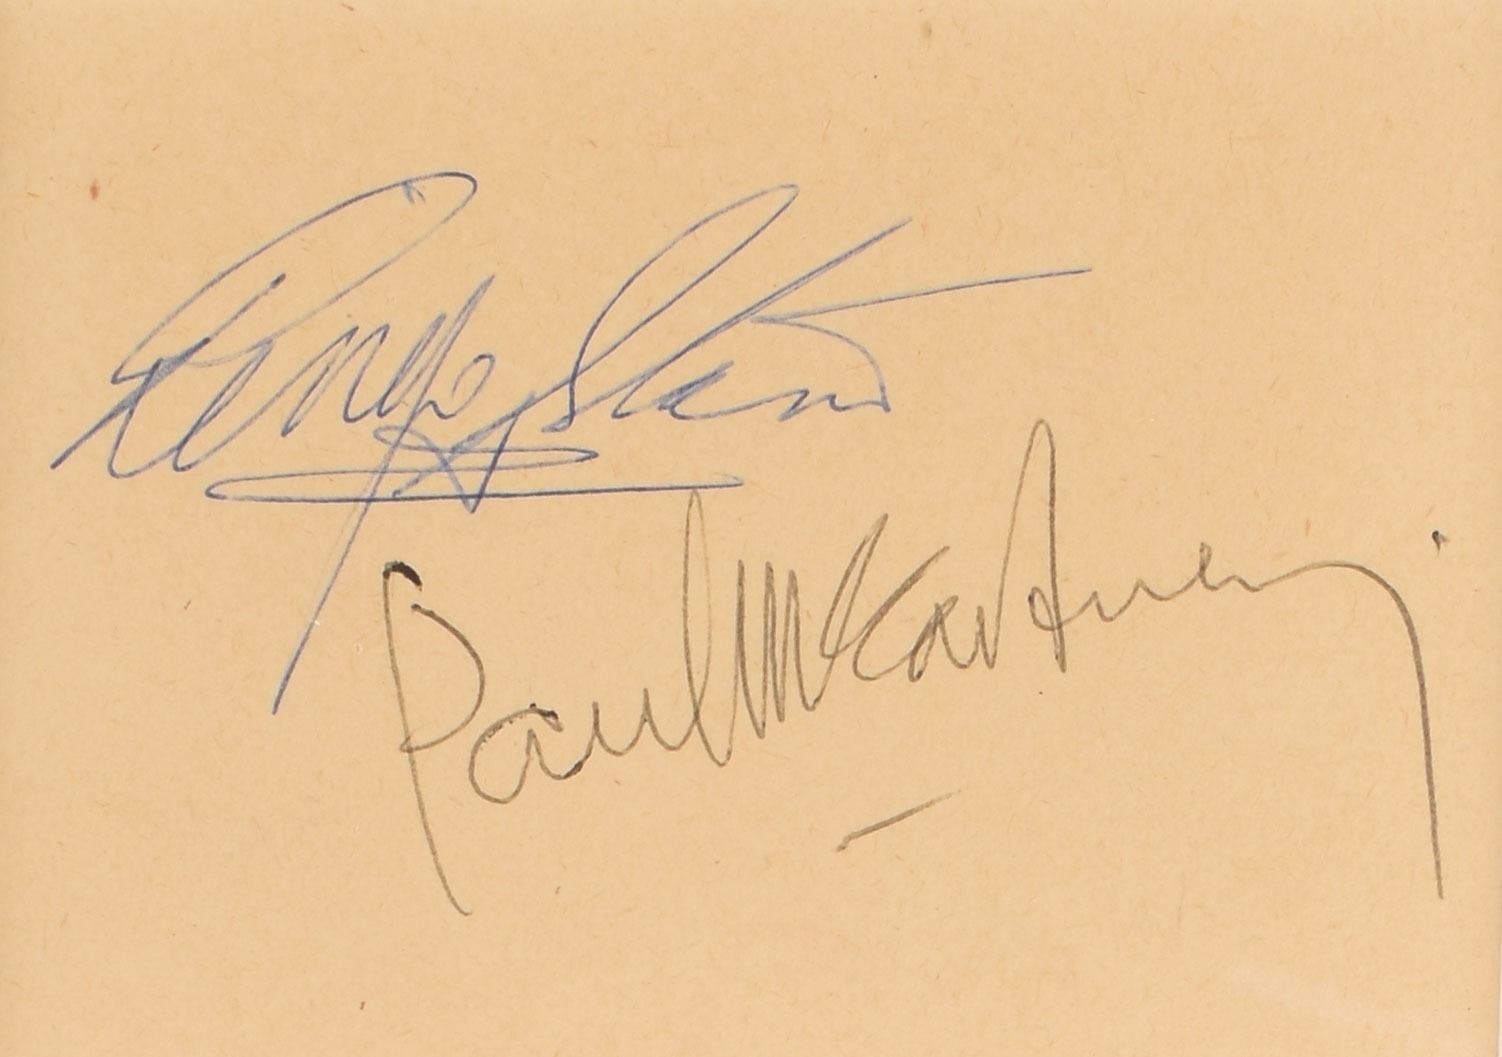 Ringo Starr
Paul McCartney